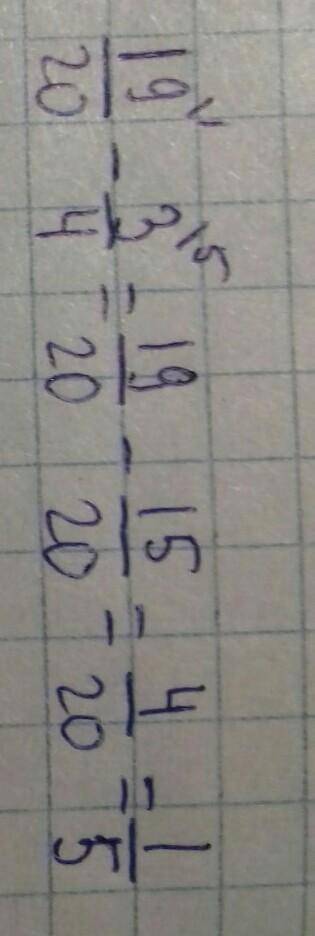 19/20 \1 - 3/4 \5 = 19/20 - 15/20 = 4/20 = 1/5